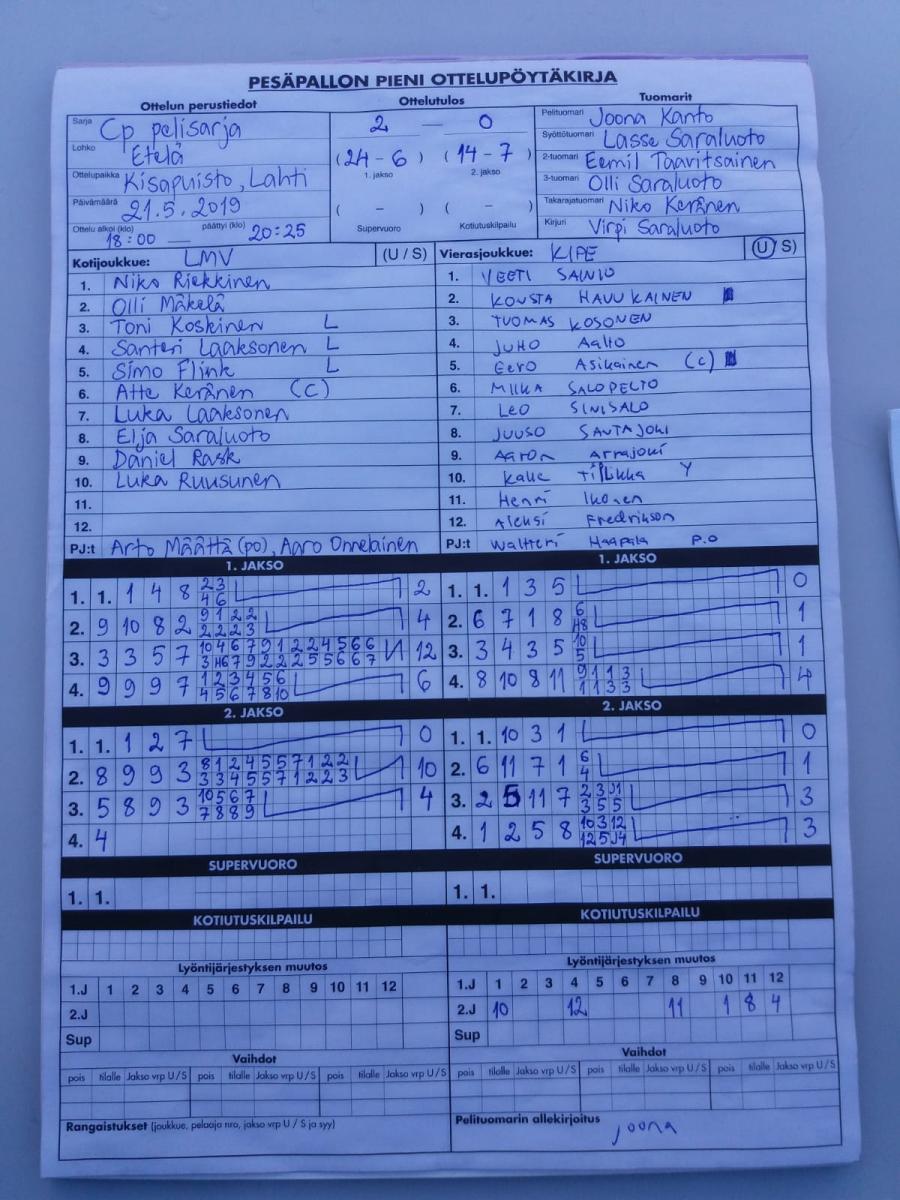 PESÄPALLON PIENI OTTELUPÖYTÄKIRJA
Ottelun perustiedot
Sarja Cp pelisarja
Lohko Etelä
Ottelupaikka Kisapuisto, Lahti
Päivämäärä 21.5.2019
Ottelu alkoi (klo) 18:00 — päättyi (klo) 20:25
Ottelutulos
2 — 0
(24 - 6) (14 - 7)
1. jakso 2. jakso
( - ) ( - )
Supervuoro Kotiutuskilpailu
Tuomarit
Pelituomari Joona Kanto
Syöttötuomari Lasse Saraluoto
2-tuomari Eemil Taavitsainen
3-tuomari Olli Saraluoto
Takarajatuomari Niko Keränen
Kirjuri Virpi Saraluoto
Kotijoukkue: LMV (U / S)
1. Niko Riekkinen
2. Olli Mäkelä
3. Toni Koskinen L
4. Santeri Laaksonen L
5. Simo Flink L
6. Atte Keränen (C)
7. Luka Laaksonen
8. Elja Saraluoto
9. Daniel Rask
10. Luka Ruusunen
11.
12.
PJ:t Arto Määttä (po), Aaro Onnelainen
Vierasjoukkue: KIPE (U / S)
1. VEETI SAINIO
2. KOUSTA HAUUKAINEN
3. TUOMAS KOSONEN
4. JUHO Aalto
5. Eero Asikainen (c)
6. MIIKA SALOPELTO
7. LEO SINISALO
8. JUUSO SAUTAJOKI
9. Aaron Arrajoki
10. Kalle Tilikka Y
11. Henri Ikonen
12. Aleksi Fredrikson
PJ:t Waltteri Haapala P.O
1. JAKSO
1. 1. 1 4 8 2 3 2
4 6
2. 9 10 8 2 9 1 2 2 4
2 2 2 3
3. 3 3 5 7 10 4 6 7 9 1 2 2 4 5 6 6 12
3 46 7 9 2 2 2 5 5 6 6 7
4. 9 9 9 7 1 2 3 4 5 6 6
4 5 6 7 8 10
1. JAKSO
1. 1. 1 3 5 0
2. 6 7 1 8 6 1
48
3. 3 4 3 5 10 1
5
4. 8 10 8 11 9 1 1 3 4
1 1 3 3
2. JAKSO
1. 1. 1 2 7 0
2. 8 9 9 3 8 1 2 4 5 5 7 1 2 2 10
3 3 4 5 5 7 1 2 2 3
3. 5 8 9 3 10 5 6 7 4
7 8 8 9
4. 4
2. JAKSO
1. 1. 10 3 1 0
2. 6 11 7 1 6 1
4
3. 2 5 11 7 2 3 11 3
3 5 5
4. 1 2 5 8 10 3 12 3
12 5 4
SUPERVUORO
1. 1.
SUPERVUORO
1. 1.
KOTIUTUSKILPAILU
KOTIUTUSKILPAILU
Lyöntijärjestyksen muutos
1.J 1 2 3 4 5 6 7 8 9 10 11 12
2.J
Sup
Lyöntijärjestyksen muutos
1.J 1 2 3 4 5 6 7 8 9 10 11 12
2.J 10 12 11 1 8 4
Sup
Vaihdot
pois tilalle Jakso vrp U / S pois tilalle Jakso vrp U / S pois tilalle Jakso vrp U / S
Vaihdot
pois tilalle Jakso vrp U / S pois tilalle Jakso vrp U / S pois tilalle Jakso vrp U / S
Rangaistukset (joukkue, pelaaja nro, jakso vrp U / S ja syy)
Pelituomarin allekirjoitus
Joona